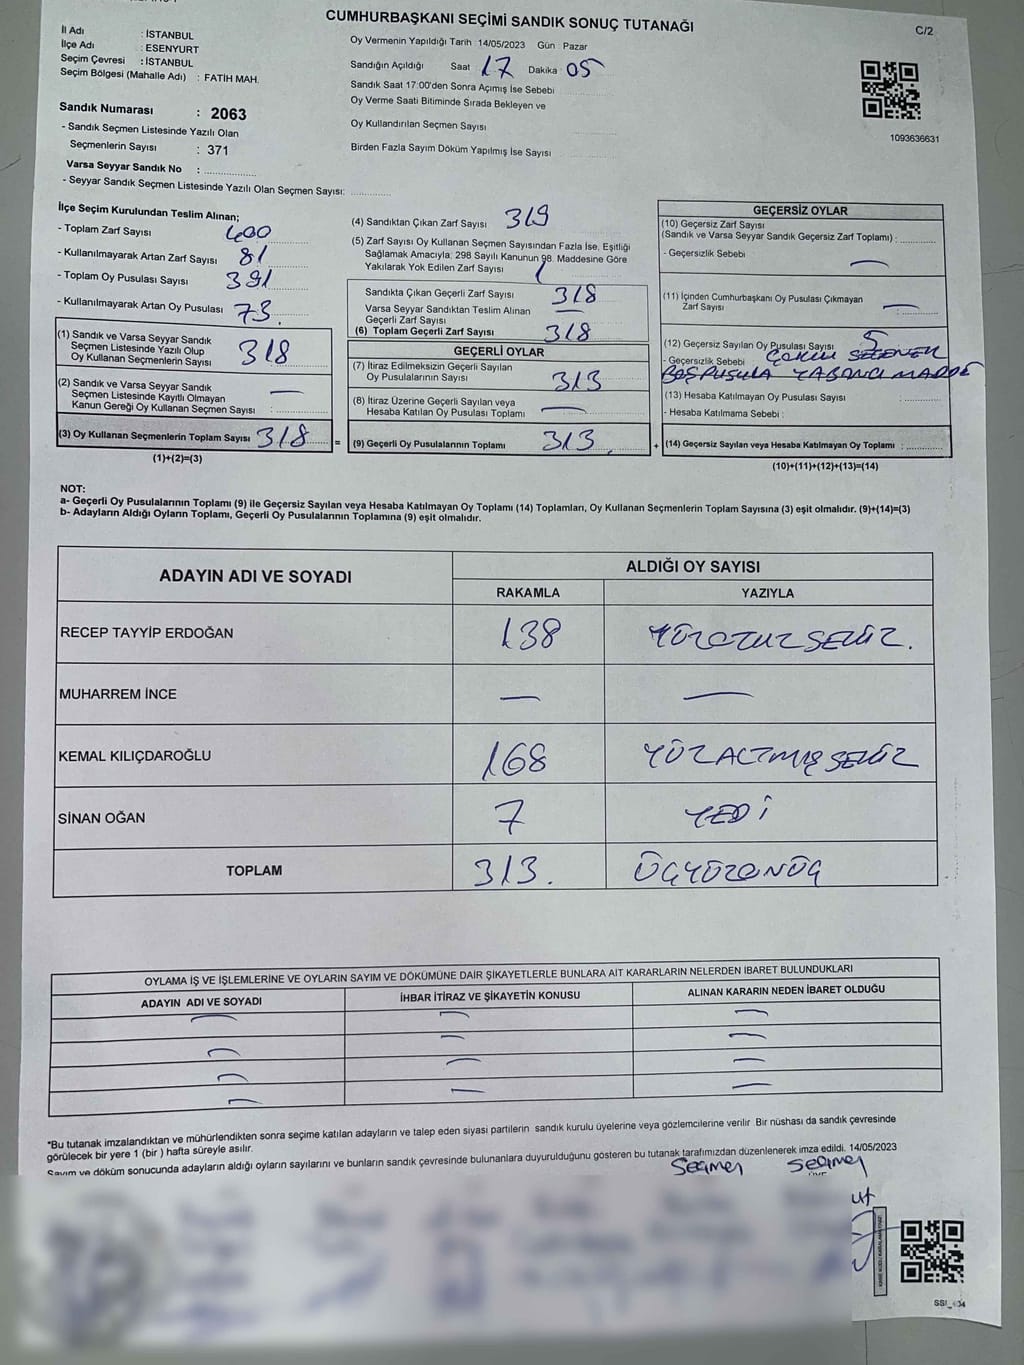 CUMHURBAŞKANI SEÇİMİ SANDIK SONUÇ TUTANAĞI
C/2
İl Adı : İSTANBUL
İlçe Adı : ESENYURT
Seçim Çevresi : İSTANBUL
Seçim Bölgesi (Mahalle Adı) : FATİH MAH.
Sandık Numarası : 2063
- Sandık Seçmen Listesinde Yazılı Olan
Seçmenlerin Sayısı : 371
Varsa Seyyar Sandık No :
- Seyyar Sandık Seçmen Listesinde Yazılı Olan Seçmen Sayısı:
Oy Vermenin Yapıldığı Tarih 14/05/2023 Gün Pazar
Sandığın Açıldığı Saat 17 Dakika 05
Sandık Saat 17:00'den Sonra Açımış İse Sebebi
Oy Verme Saati Bitiminde Sırada Bekleyen ve
Oy Kullandırılan Seçmen Sayısı
Birden Fazla Sayım Döküm Yapılmış İse Sayısı
1093636631
İlçe Seçim Kurulundan Teslim Alınan;
- Toplam Zarf Sayısı 400
- Kullanılmayarak Artan Zarf Sayısı 81
- Toplam Oy Pusulası Sayısı 391
- Kullanılmayarak Artan Oy Pusulası 73
(1) Sandık ve Varsa Seyyar Sandık
Seçmen Listesinde Yazılı Olup
Oy Kullanan Seçmenlerin Sayısı 318
(2) Sandık ve Varsa Seyyar Sandık
Seçmen Listesinde Kayıtlı Olmayan
Kanun Gereği Oy Kullanan Seçmen Sayısı : —
(3) Oy Kullanan Seçmenlerin Toplam Sayısı 318 =
(1)+(2)=(3)
(4) Sandıktan Çıkan Zarf Sayısı 319
(5) Zarf Sayısı Oy Kullanan Seçmen Sayısından Fazla İse, Eşitliği
Sağlamak Amacıyla, 298 Sayılı Kanunun 98. Maddesine Göre
Yakılarak Yok Edilen Zarf Sayısı 1
Sandıkta Çıkan Geçerli Zarf Sayısı 318
Varsa Seyyar Sandıktan Teslim Alınan
Geçerli Zarf Sayısı —
(6) Toplam Geçerli Zarf Sayısı 318
GEÇERLİ OYLAR
(7) İtiraz Edilmeksizin Geçerli Sayılan
Oy Pusulalarının Sayısı 313
(8) İtiraz Üzerine Geçerli Sayılan veya
Hesaba Katılan Oy Pusulası Toplamı —
(9) Geçerli Oy Pusulalarının Toplamı 313 +
GEÇERSİZ OYLAR
(10) Geçersiz Zarf Sayısı
(Sandık ve Varsa Seyyar Sandık Geçersiz Zarf Toplamı) :
- Geçersizlik Sebebi —
(11) İçinden Cumhurbaşkanı Oy Pusulası Çıkmayan
Zarf Sayısı : —
(12) Geçersiz Sayılan Oy Pusulası Sayısı 5
- Geçersizlik Sebebi SEÇENEK
BOŞ PUSULA YABANCI MADDE
(13) Hesaba Katılmayan Oy Pusulası Sayısı :
- Hesaba Katılmama Sebebi :
(14) Geçersiz Sayılan veya Hesaba Katılmayan Oy Toplamı :
(10)+(11)+(12)+(13)=(14)
NOT:
a- Geçerli Oy Pusulalarının Toplamı (9) ile Geçersiz Sayılan veya Hesaba Katılmayan Oy Toplamı (14) Toplamları, Oy Kullanan Seçmenlerin Toplam Sayısına (3) eşit olmalıdır. (9)+(14)=(3)
b- Adayların Aldığı Oyların Toplamı, Geçerli Oy Pusulalarının Toplamına (9) eşit olmalıdır.
ADAYIN ADI VE SOYADI
ALDIĞI OY SAYISI
RAKAMLA YAZIYLA
RECEP TAYYİP ERDOĞAN 138 YÜZOTUZSEKİZ.
MUHARREM İNCE — —
KEMAL KILIÇDAROĞLU 168 YÜZALTMIŞSEKİZ
SİNAN OĞAN 7 YEDİ
TOPLAM 313. ÜÇYÜZONÜÇ
OYLAMA İŞ VE İŞLEMLERİNE VE OYLARIN SAYIM VE DÖKÜMÜNE DAİR ŞİKAYETLERLE BUNLARA AİT KARARLARIN NELERDEN İBARET BULUNDUKLARI
ADAYIN ADI VE SOYADI İHBAR İTİRAZ VE ŞİKAYETİN KONUSU ALINAN KARARIN NEDEN İBARET OLDUĞU
— — —
— — —
— — —
— — —
*Bu tutanak imzalandıktan ve mühürlendikten sonra seçime katılan adayların ve talep eden siyasi partilerin sandık kurulu üyelerine veya gözlemcilerine verilir Bir nüshası da sandık çevresinde
görülecek bir yere 1 (bir ) hafta süreyle asılır.
Sayım ve döküm sonucunda adayların aldığı oyların sayılarını ve bunların sandık çevresinde bulunanlara duyurulduğunu gösteren bu tutanak tarafımızdan düzenlenerek imza edildi. 14/05/2023
Seçmen Seçmen
ut